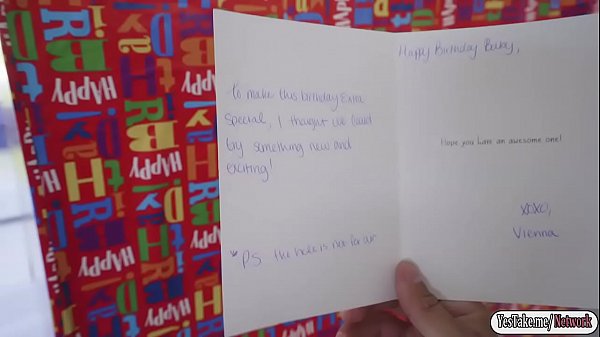 to make this birthday extra
special, I thought we could
try something new and
exciting!
*PS the hole is not for air
Happy Birthday Baby,
Hope you have an awesome one!
XOXO,
Vienna
HAPPY
HAPPY
HAPPY
HAPPY
YesTake.me/ Network